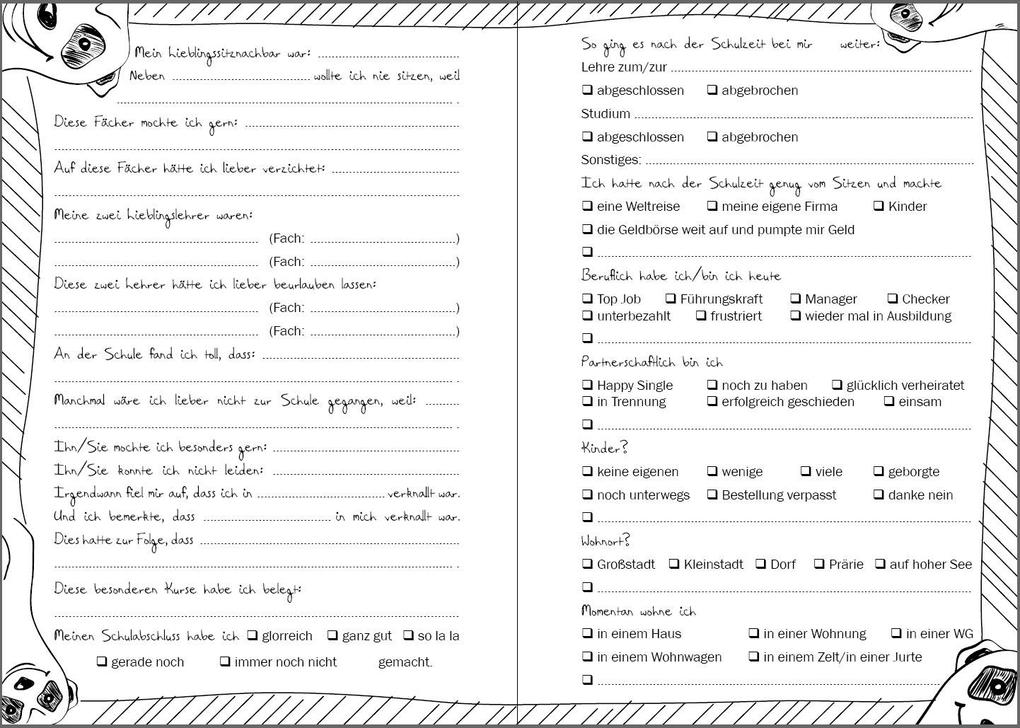 Mein Lieblingssitznachbar war:
Neben ........ wollte ich nie sitzen, weil
.
Diese Fächer mochte ich gern:
Auf diese Fächer hätte ich lieber verzichtet:
Meine zwei Lieblingslehrer waren:
(Fach: ........)
(Fach: ........)
Diese zwei Lehrer hätte ich lieber beurlauben lassen:
(Fach: ........)
(Fach: ........)
An der Schule fand ich toll, dass:
.
Manchmal wäre ich lieber nicht zur Schule gegangen, weil:
.
Ihn/Sie mochte ich besonders gern:
Ihn/Sie konnte ich nicht leiden:
Irgendwann fiel mir auf, dass ich in ........ verknallt war.
Und ich bemerkte, dass ........ in mich verknallt war.
Dies hatte zur Folge, dass
.
Diese besonderen Kurse habe ich belegt:
Meinen Schulabschluss habe ich ❑ glorreich ❑ ganz gut ❑ so la la
❑ gerade noch ❑ immer noch nicht gemacht.
So ging es nach der Schulzeit bei mir weiter:
Lehre zum/zur
❑ abgeschlossen ❑ abgebrochen
Studium
❑ abgeschlossen ❑ abgebrochen
Sonstiges:
Ich hatte nach der Schulzeit genug vom Sitzen und machte
❑ eine Weltreise ❑ meine eigene Firma ❑ Kinder
❑ die Geldbörse weit auf und pumpte mir Geld
❑
Beruflich habe ich/bin ich heute
❑ Top Job ❑ Führungskraft ❑ Manager ❑ Checker
❑ unterbezahlt ❑ frustriert ❑ wieder mal in Ausbildung
❑
Partnerschaftlich bin ich
❑ Happy Single ❑ noch zu haben ❑ glücklich verheiratet
❑ in Trennung ❑ erfolgreich geschieden ❑ einsam
❑
Kinder?
❑ keine eigenen ❑ wenige ❑ viele ❑ geborgte
❑ noch unterwegs ❑ Bestellung verpasst ❑ danke nein
❑
Wohnort?
❑ Großstadt ❑ Kleinstadt ❑ Dorf ❑ Prärie ❑ auf hoher See
❑
Momentan wohne ich
❑ in einem Haus ❑ in einer Wohnung ❑ in einer WG
❑ in einem Wohnwagen ❑ in einem Zelt/in einer Jurte
❑